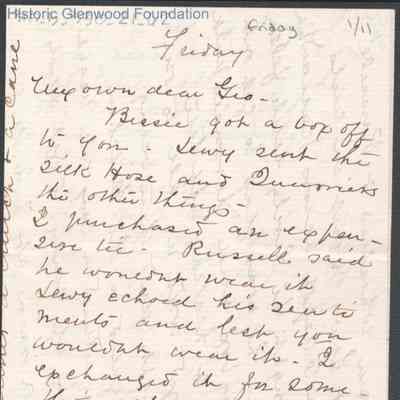 Historic Glenwood Foundation
Friday
1/11
Friday
My own dear Geo-
Bessie got a box off
to you - Lewy sent the
silk Hose and
the other things-
I purchased an expen-
sive tie - Russell said
he wouldnt wear it
Lewy echoed his senti
ments and lest you
wouldnt wear it - I
exchanged it for some-
& a cane